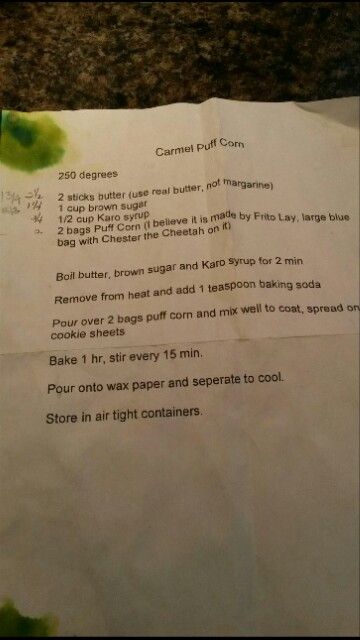 Carmel Puff Corn
250 degrees
2 sticks butter (use real butter, not margarine)
1 1/4 1 cup brown sugar
3/4 1/2 cup Karo syrup
2 bags Puff Corn (I believe it is made by Frito Lay, large blue
bag with Chester the Cheetah on it)
Boil butter, brown sugar and Karo syrup for 2 min
Remove from heat and add 1 teaspoon baking soda
Pour over 2 bags puff corn and mix well to coat, spread on
cookie sheets
Bake 1 hr, stir every 15 min.
Pour onto wax paper and seperate to cool.
Store in air tight containers.